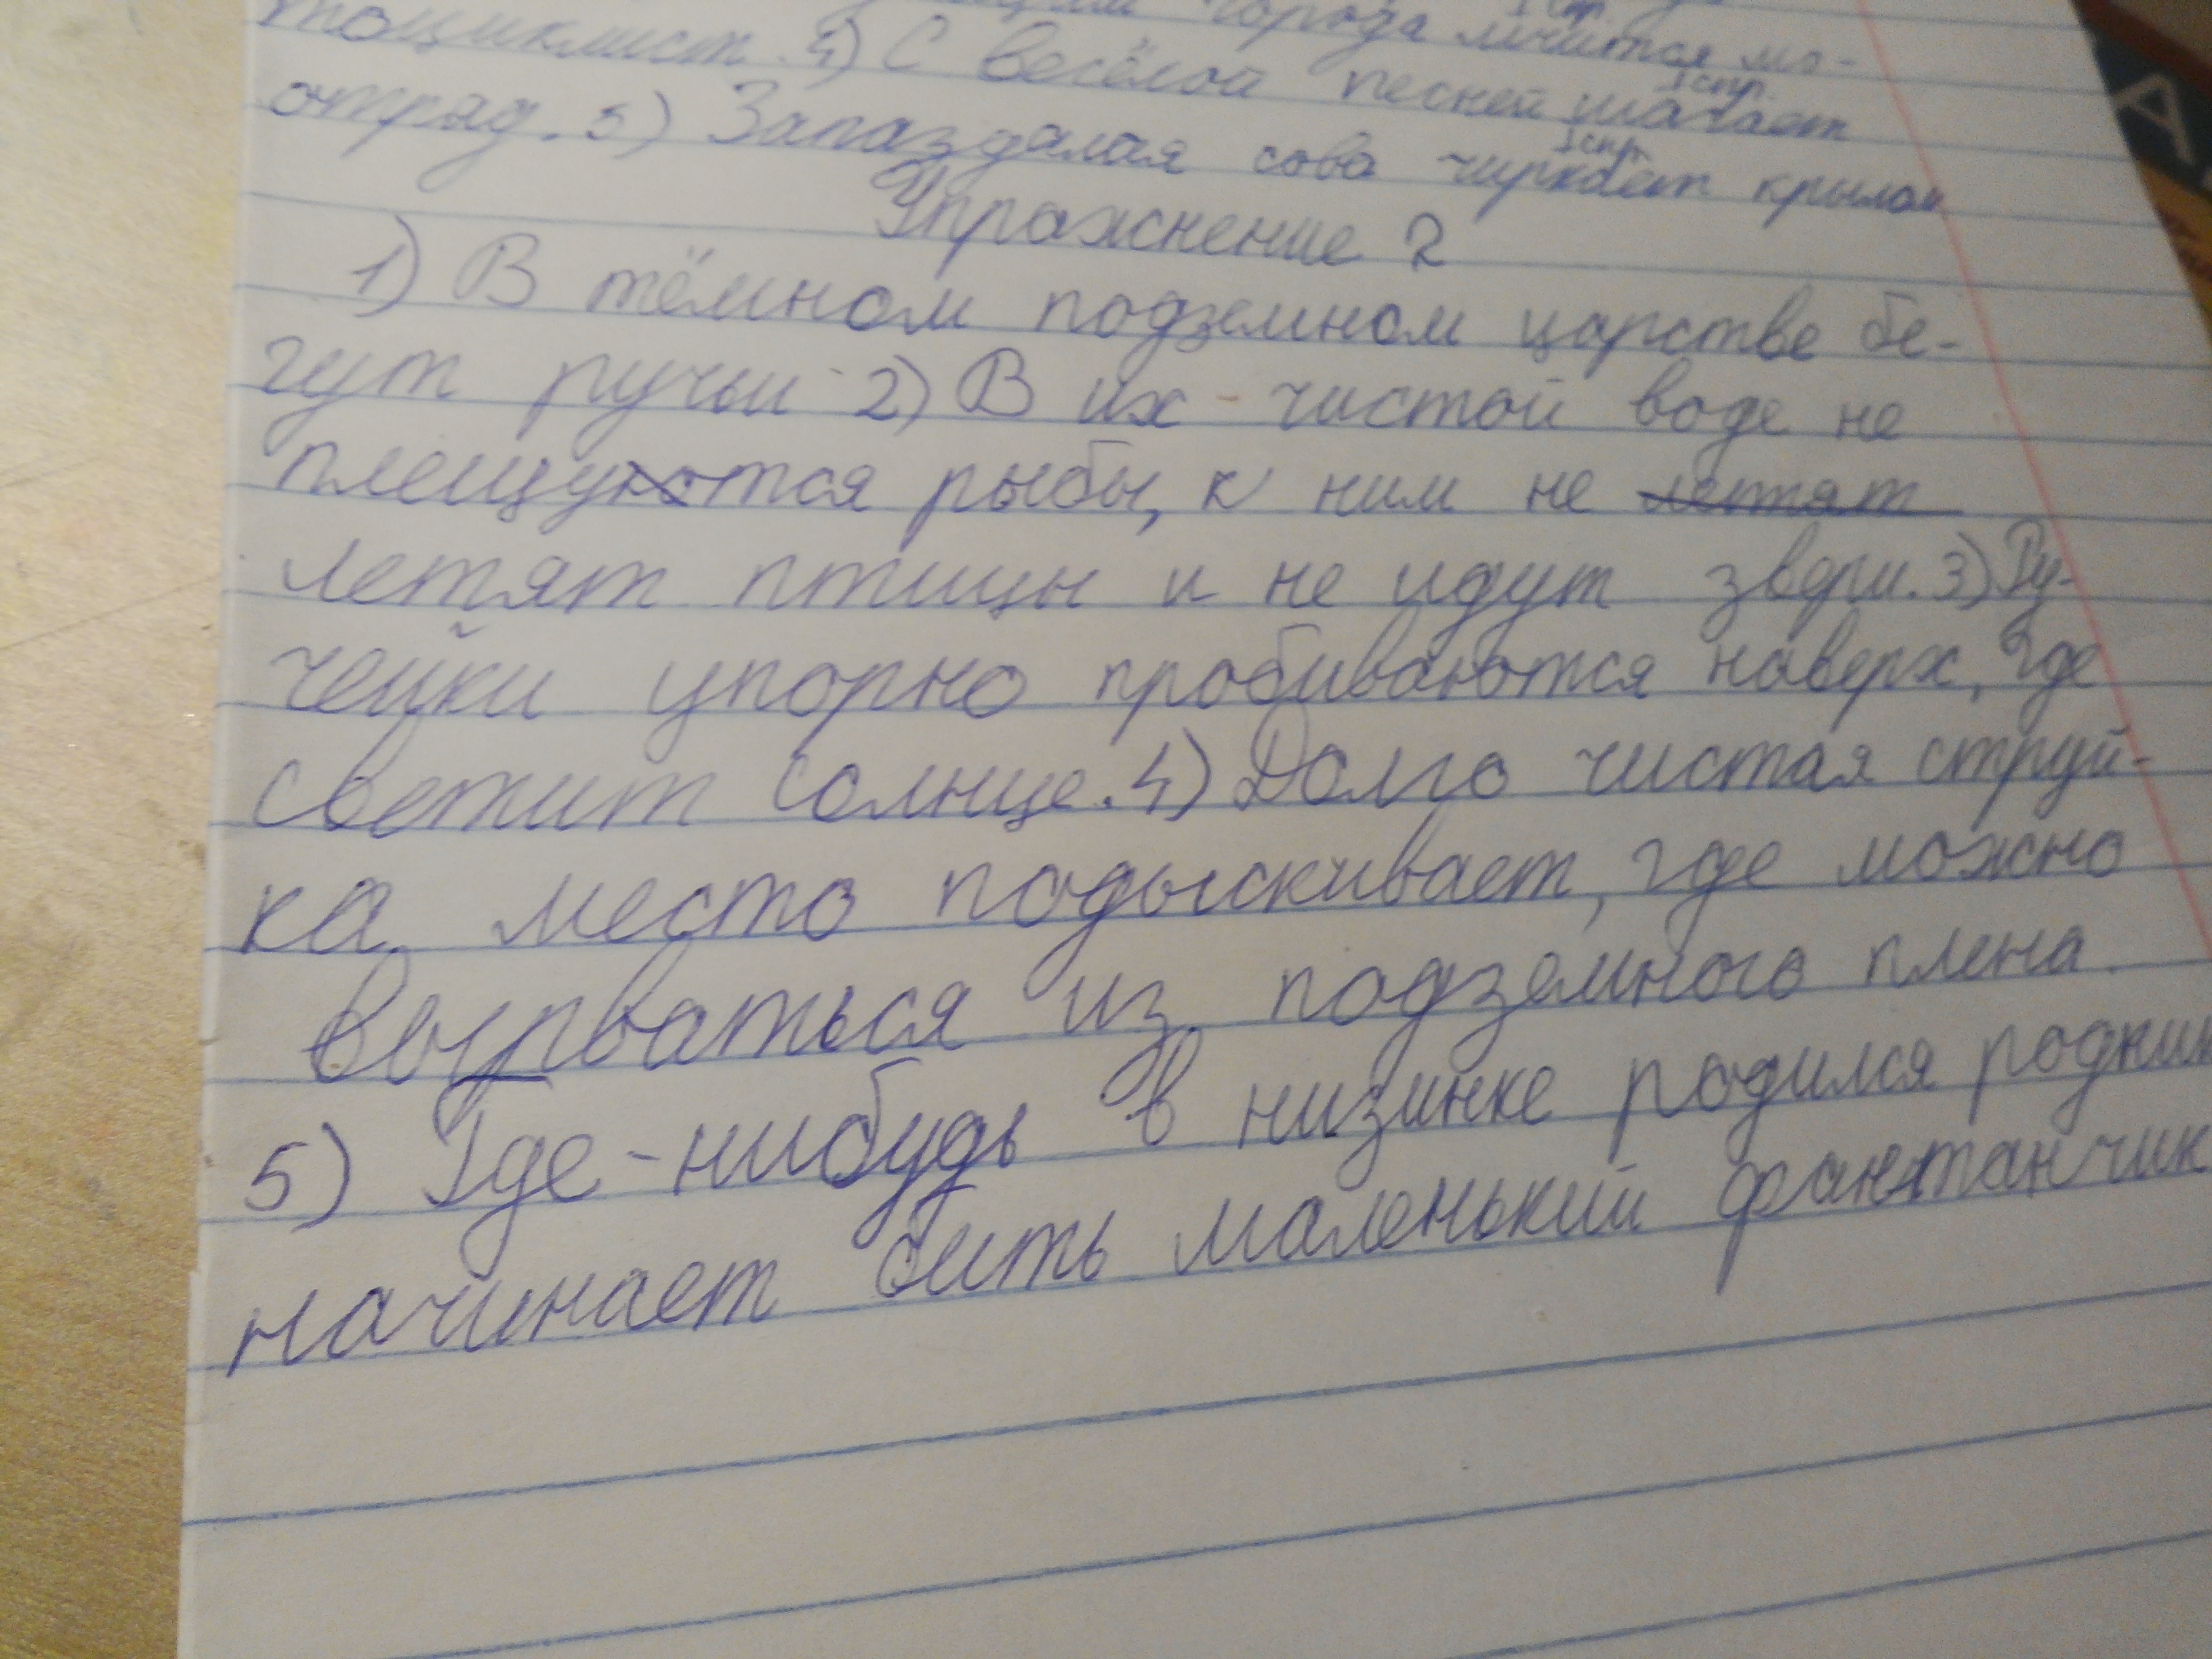 города мчится мо-
1 спр.
тоциклист. 4) С весёлой песней шагает
1 спр.
отряд. 5) Запаздалая сова чиркает крылом
1 спр.
Упражнение 2
1) В тёмном подземном царстве бе-
гут ручьи 2) В их чистой воде не
плещуются рыбы, к ним не летят
летят птицы и не идут звери. 3) Ру-
чейки упорно пробиваются наверх, где
светит солнце. 4) Долго чистая струй-
ка место подыскивает, где можно
вырваться из подземного плена.
5) Где-нибудь в низинке родился родник
начинает бить маленький фантанчик
А